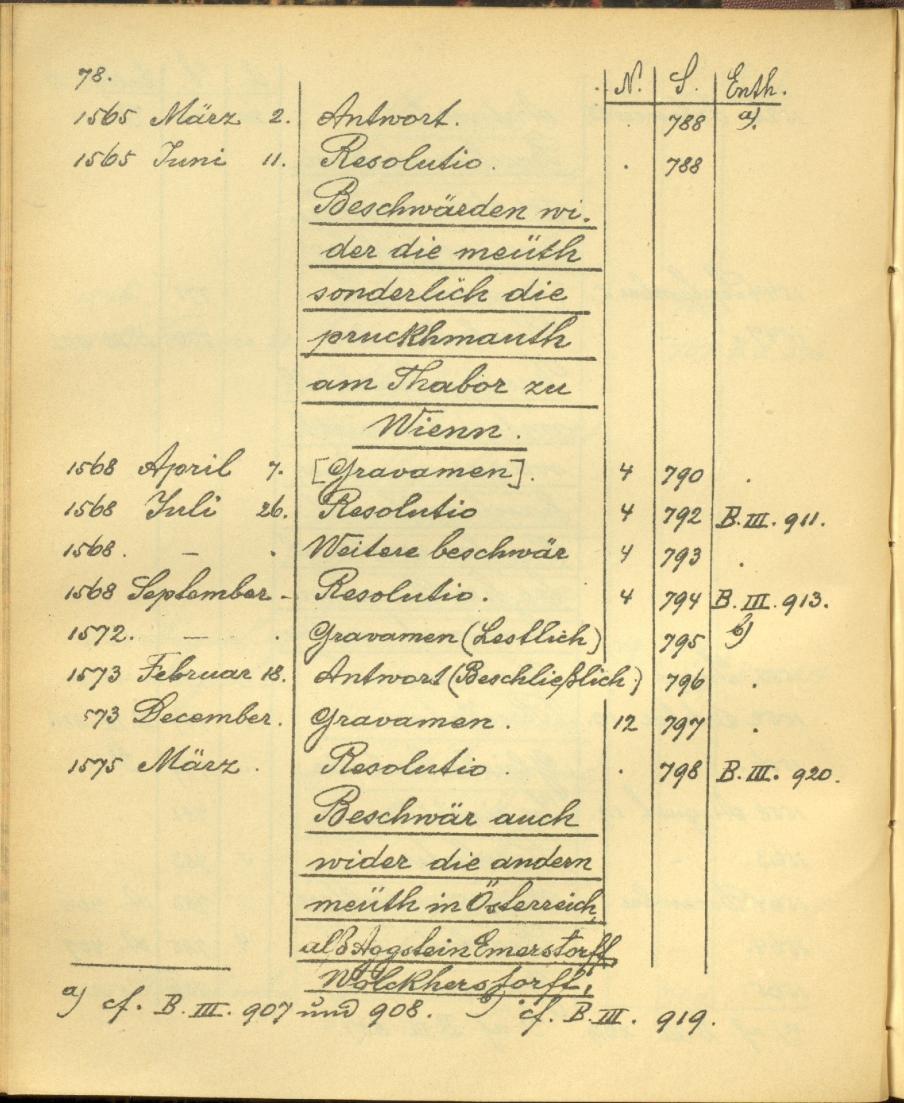 78.
N. S. Enth.
1565 März 2. Antwort. . 788 a).
1565 Juni 11. Resolutio. . 788
Beschwärden wi-
der die meüth
sonderlich die
pruckhmauth
am Thabor zu
Wienn.
1568 April 7. [Gravamen]. 4 790 .
1568 Juli 26. Resolutio 4 792 B. III. 911.
1568. – . Weitere beschwär 4 793 .
1568 September - Resolutio. 4 794 B. III. 913.
1572. — . Gravamen (Lestlich) 795 b)
1573 Februar 18. Antwort (Beschließlich) 796 .
573 December. Gravamen. 12 797 .
1575 März. Resolutio. . 798 B. III. 920.
Beschwär auch
wider die andern
meüth in Österreich,
alß Aggstein Emerstorff
Wolckherstorff,
a) cf. B. III. 907 und 908. b) cf. B. III. 919.